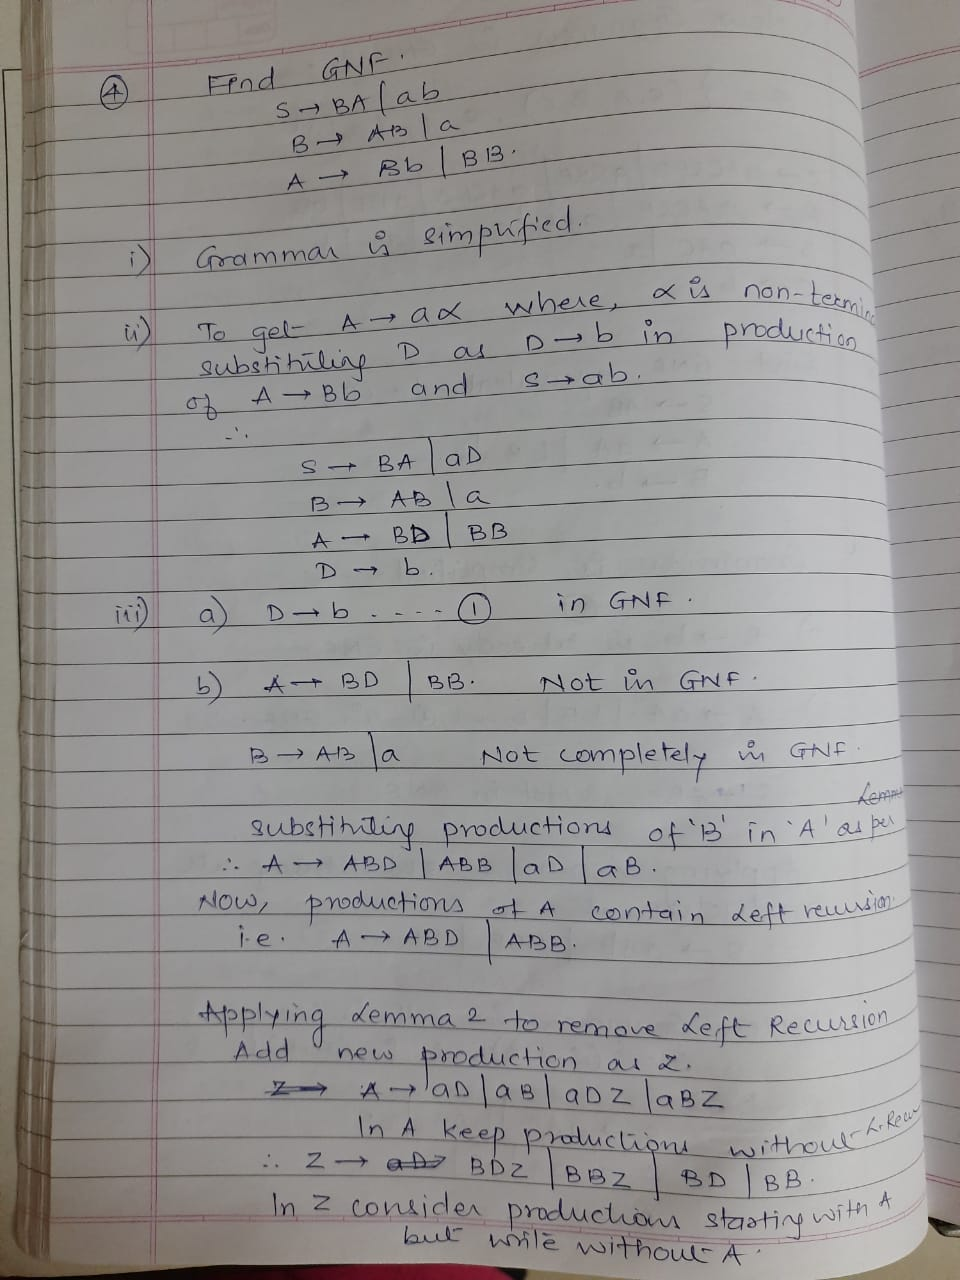 ④ Find GNF.
S → BA | ab
B → AB | a
A → Bb | BB.
i) Grammar is simplified.
ii) To get A → aα where, α is non-termin
substituting D as D → b in production
of A → Bb and S → ab.
∴
S → BA | aD
B → AB | a
A → BD | BB
D → b.
iii) a) D → b . - - - - ① in GNF.
b) A → BD | BB. Not in GNF.
B → AB | a Not completely in GNF.
substituting productions of 'B' in 'A' as per Lemma
∴ A → ABD | ABB | aD | aB.
Now, productions of A contain Left recursion.
i.e. A → ABD | ABB.
Applying Lemma 2 to remove Left Recursion
Add new production as Z.
Z → A → aD | aB | aDZ | aBZ
In A keep productions without L-Recu
∴ Z → aDZ BDZ | BBZ | BD | BB.
In Z consider productions starting with A
but write without A.